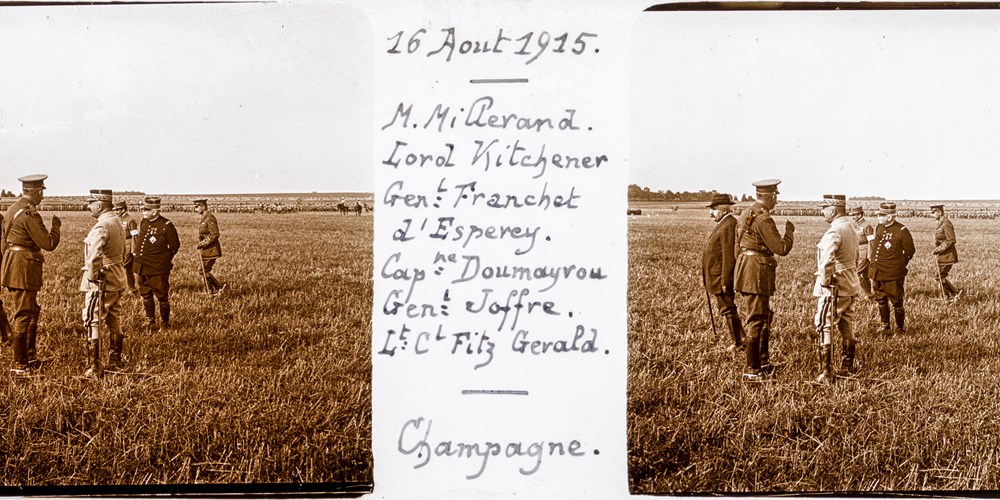 16 Aout 1915.
M. Millerand.
Lord Kitchener
Gen:t Franchet
d'Esperey.
Cap:ne Doumayrou
Gen:t Joffre.
Lt: Ct Fitz Gerald.
Champagne.